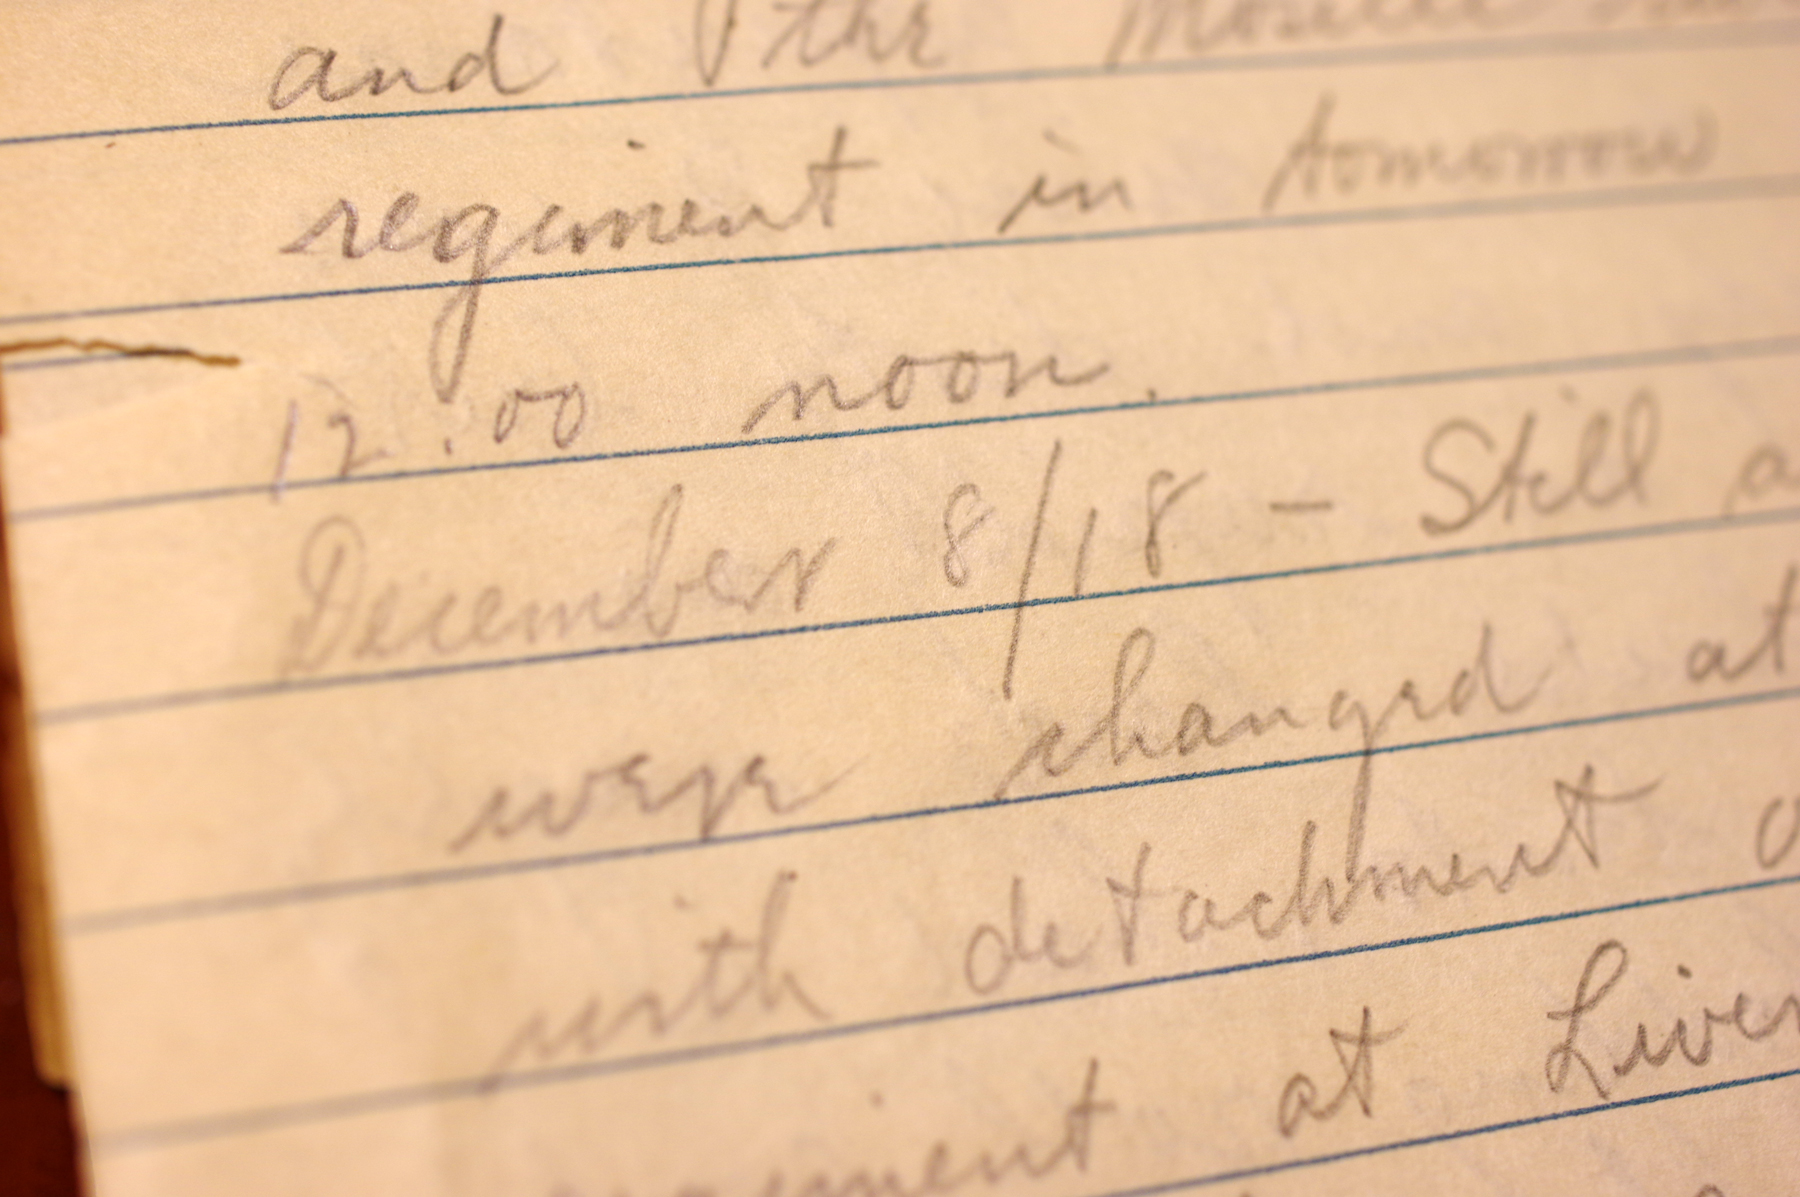 and the Moselle
regiment in tomorrow
12:00 noon.
December 8/18 – Still a
were changed at
with detachment o
at Liver